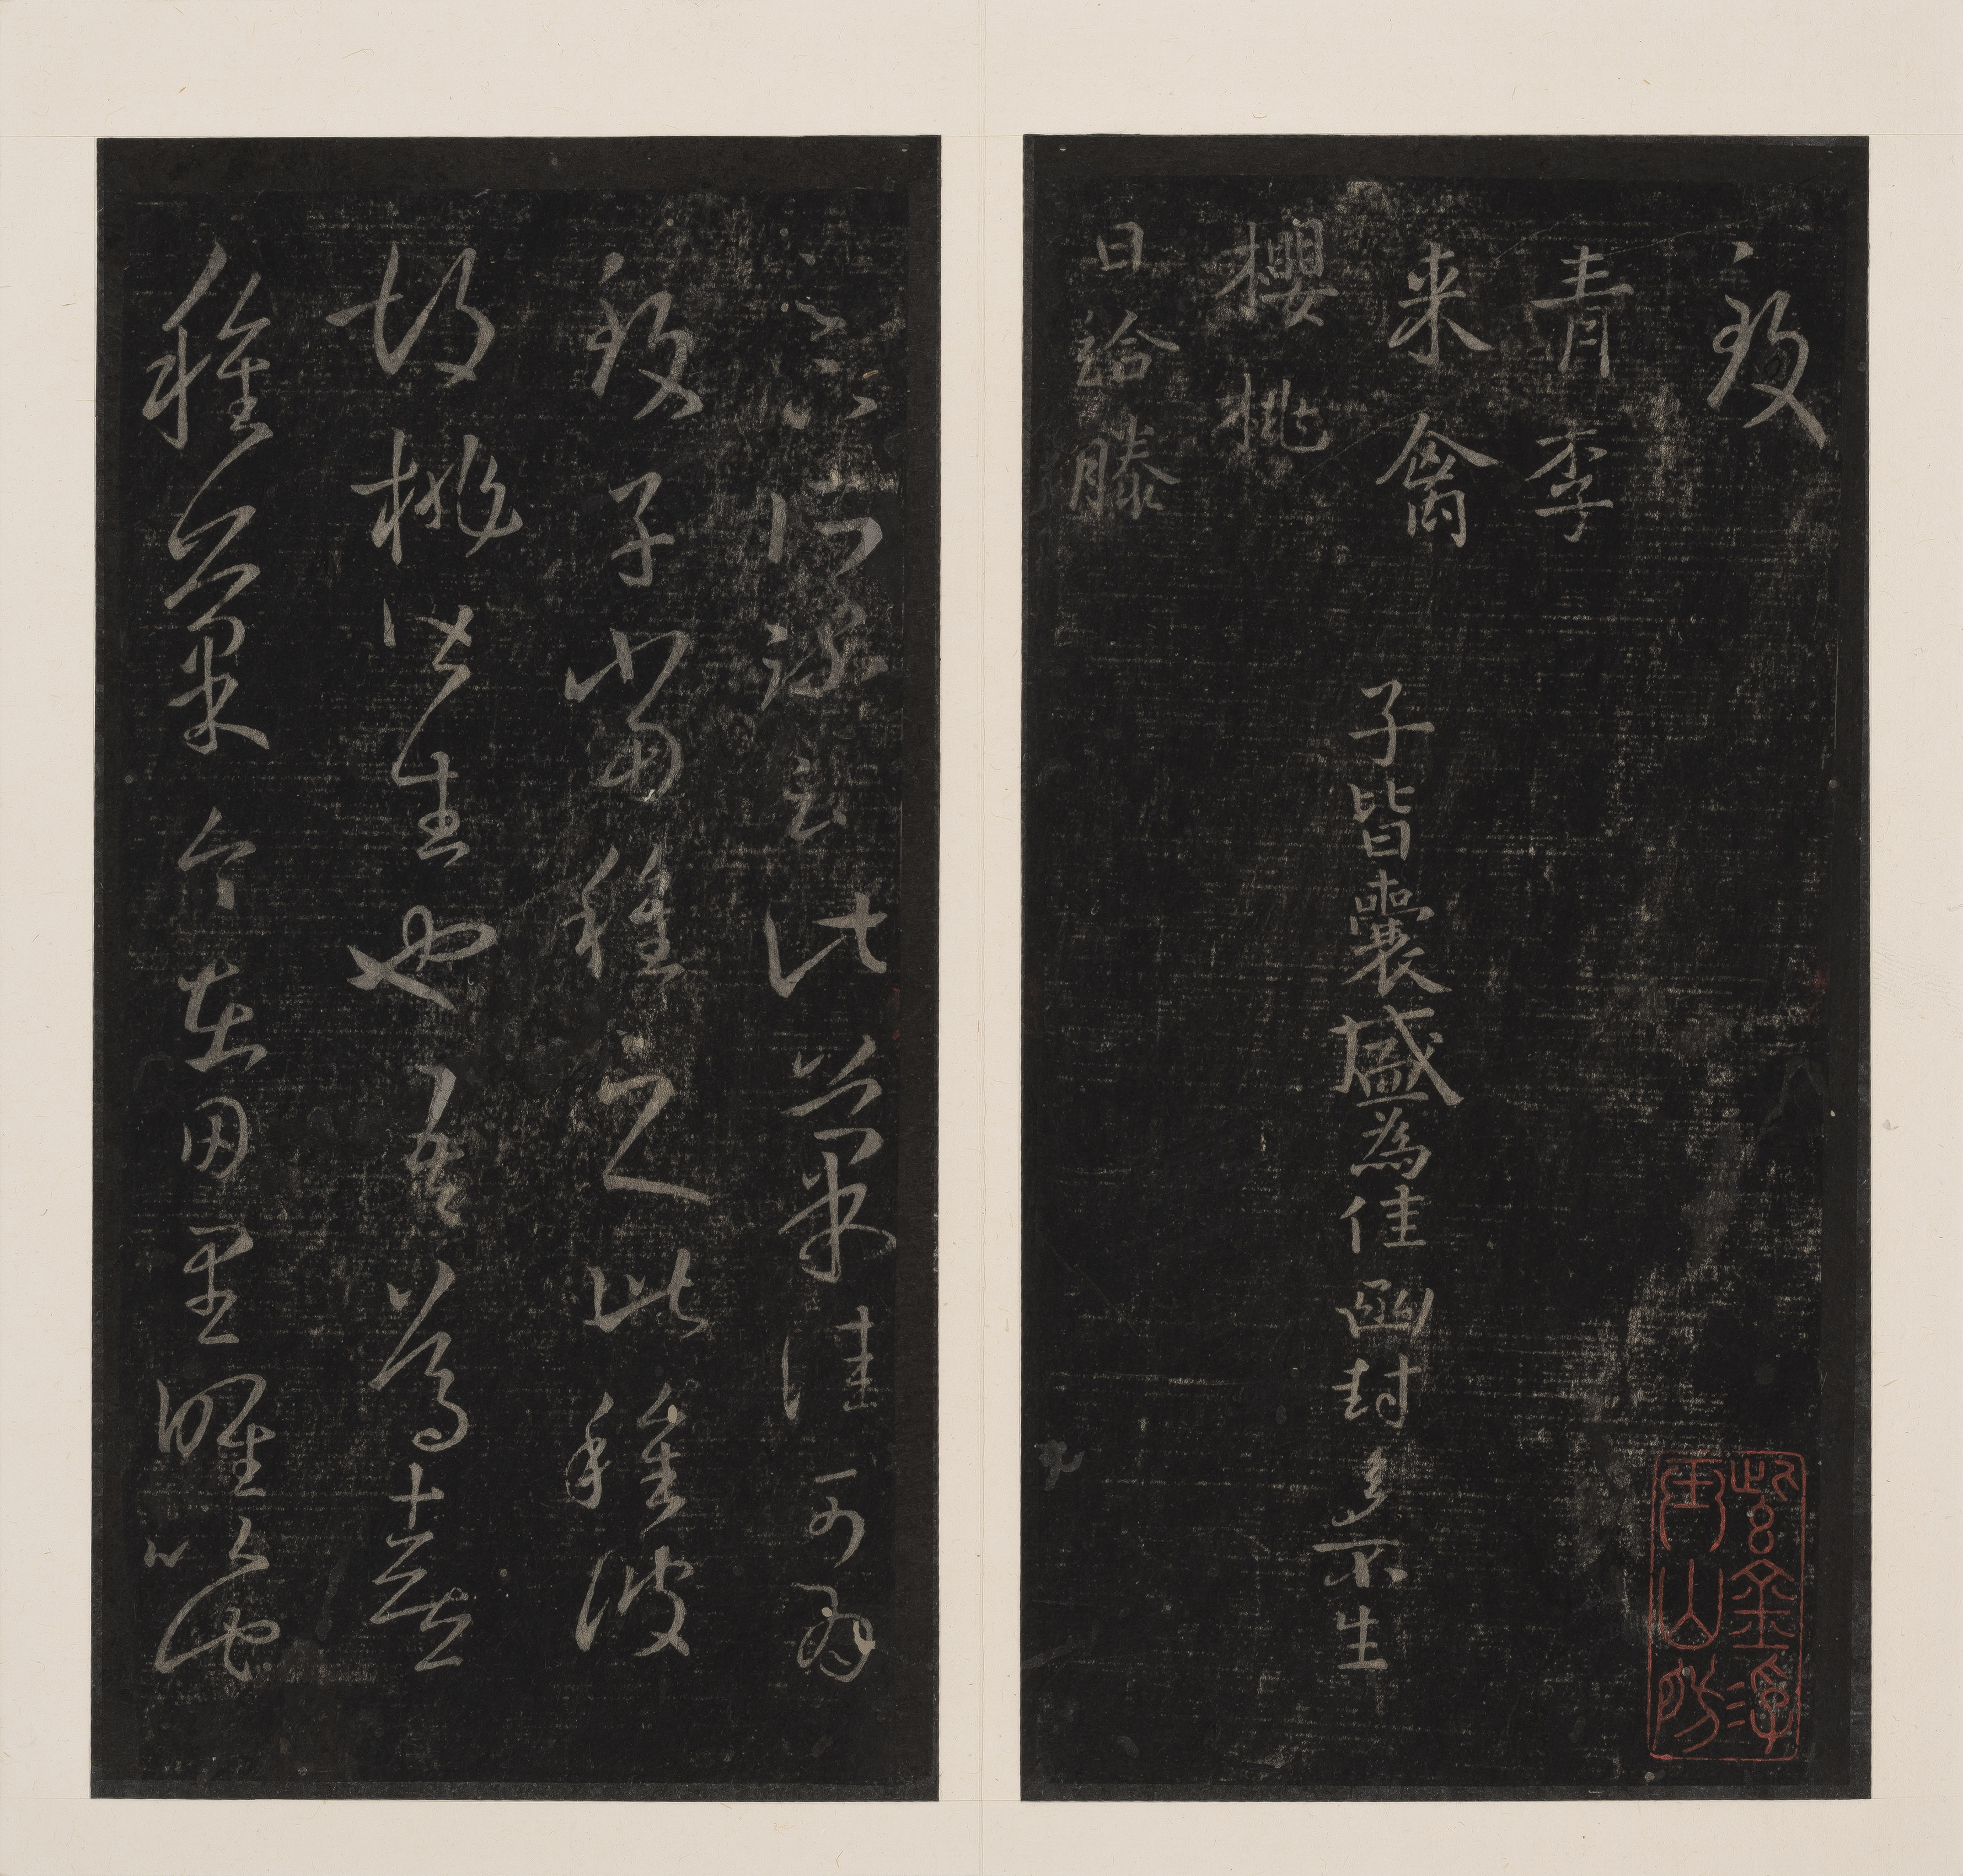 致
青李
来禽
櫻桃
日給滕
子皆囊盛為佳函封多不生
足下所疏云此菓佳可為
致子當種之此種彼
胡桃皆生也吾篤喜
種菓今在田里唯以此
紫金浮
玉山房